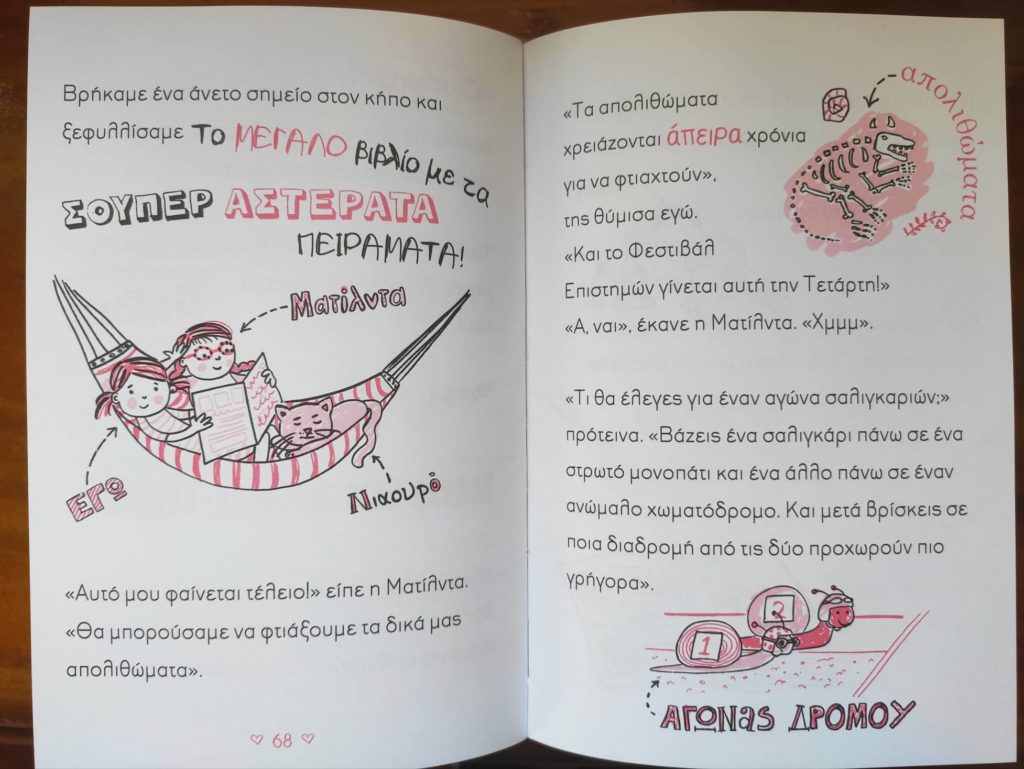 Βρήκαμε ένα άνετο σημείο στον κήπο και
ξεφυλλίσαμε το ΜΕΓΑΛΟ βιβλίο με τα
ΣΟΥΠΕΡ ΑΣΤΕΡΑΤΑ
ΠΕΙΡΑΜΑΤΑ!
Ματίλντα
Εγώ
Νιαουρό
«Αυτό μου φαίνεται τέλειο!» είπε η Ματίλντα.
«Θα μπορούσαμε να φτιάξουμε τα δικά μας
απολιθώματα».
68
«Τα απολιθώματα
χρειάζονται άπειρα χρόνια
για να φτιαχτούν»,
της θύμισα εγώ.
«Και το Φεστιβάλ
Επιστημών γίνεται αυτή την Τετάρτη!»
«Α, ναι», έκανε η Ματίλντα. «Χμμμ».
απολιθώματα
«Τι θα έλεγες για έναν αγώνα σαλιγκαριών;»
πρότεινα. «Βάζεις ένα σαλιγκάρι πάνω σε ένα
στρωτό μονοπάτι και ένα άλλο πάνω σε έναν
ανώμαλο χωματόδρομο. Και μετά βρίσκεις σε
ποια διαδρομή από τις δύο προχωρούν πιο
γρήγορα».
2
1
ΑΓΩΝΑΣ ΔΡΟΜΟΥ